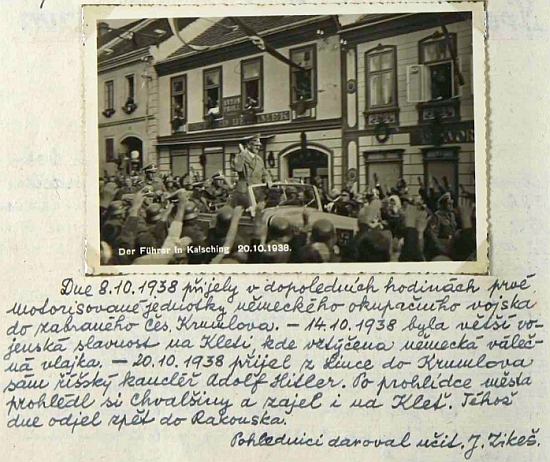 Der Führer in Kalsching 20.10.1938.
Dne 8.10.1938 přijely v dopoledních hodinách prvé
motorisované jednotky německého okupačního vojska
do zabraného Čes. Krumlova. – 14.10.1938 byla větší vo-
jenská slavnost na Kleti, kde vztýčena německá váleč-
ná vlajka. – 20.10.1938 přijel z Lince do Krumlova
sám říšský kancléř Adolf Hitler. Po prohlídce města
prohlédl si Chvalšiny a zajel i na Kleť. Téhož
dne odjel zpět do Rakouska.
Pohlednici daroval učit. J. Zikeš.